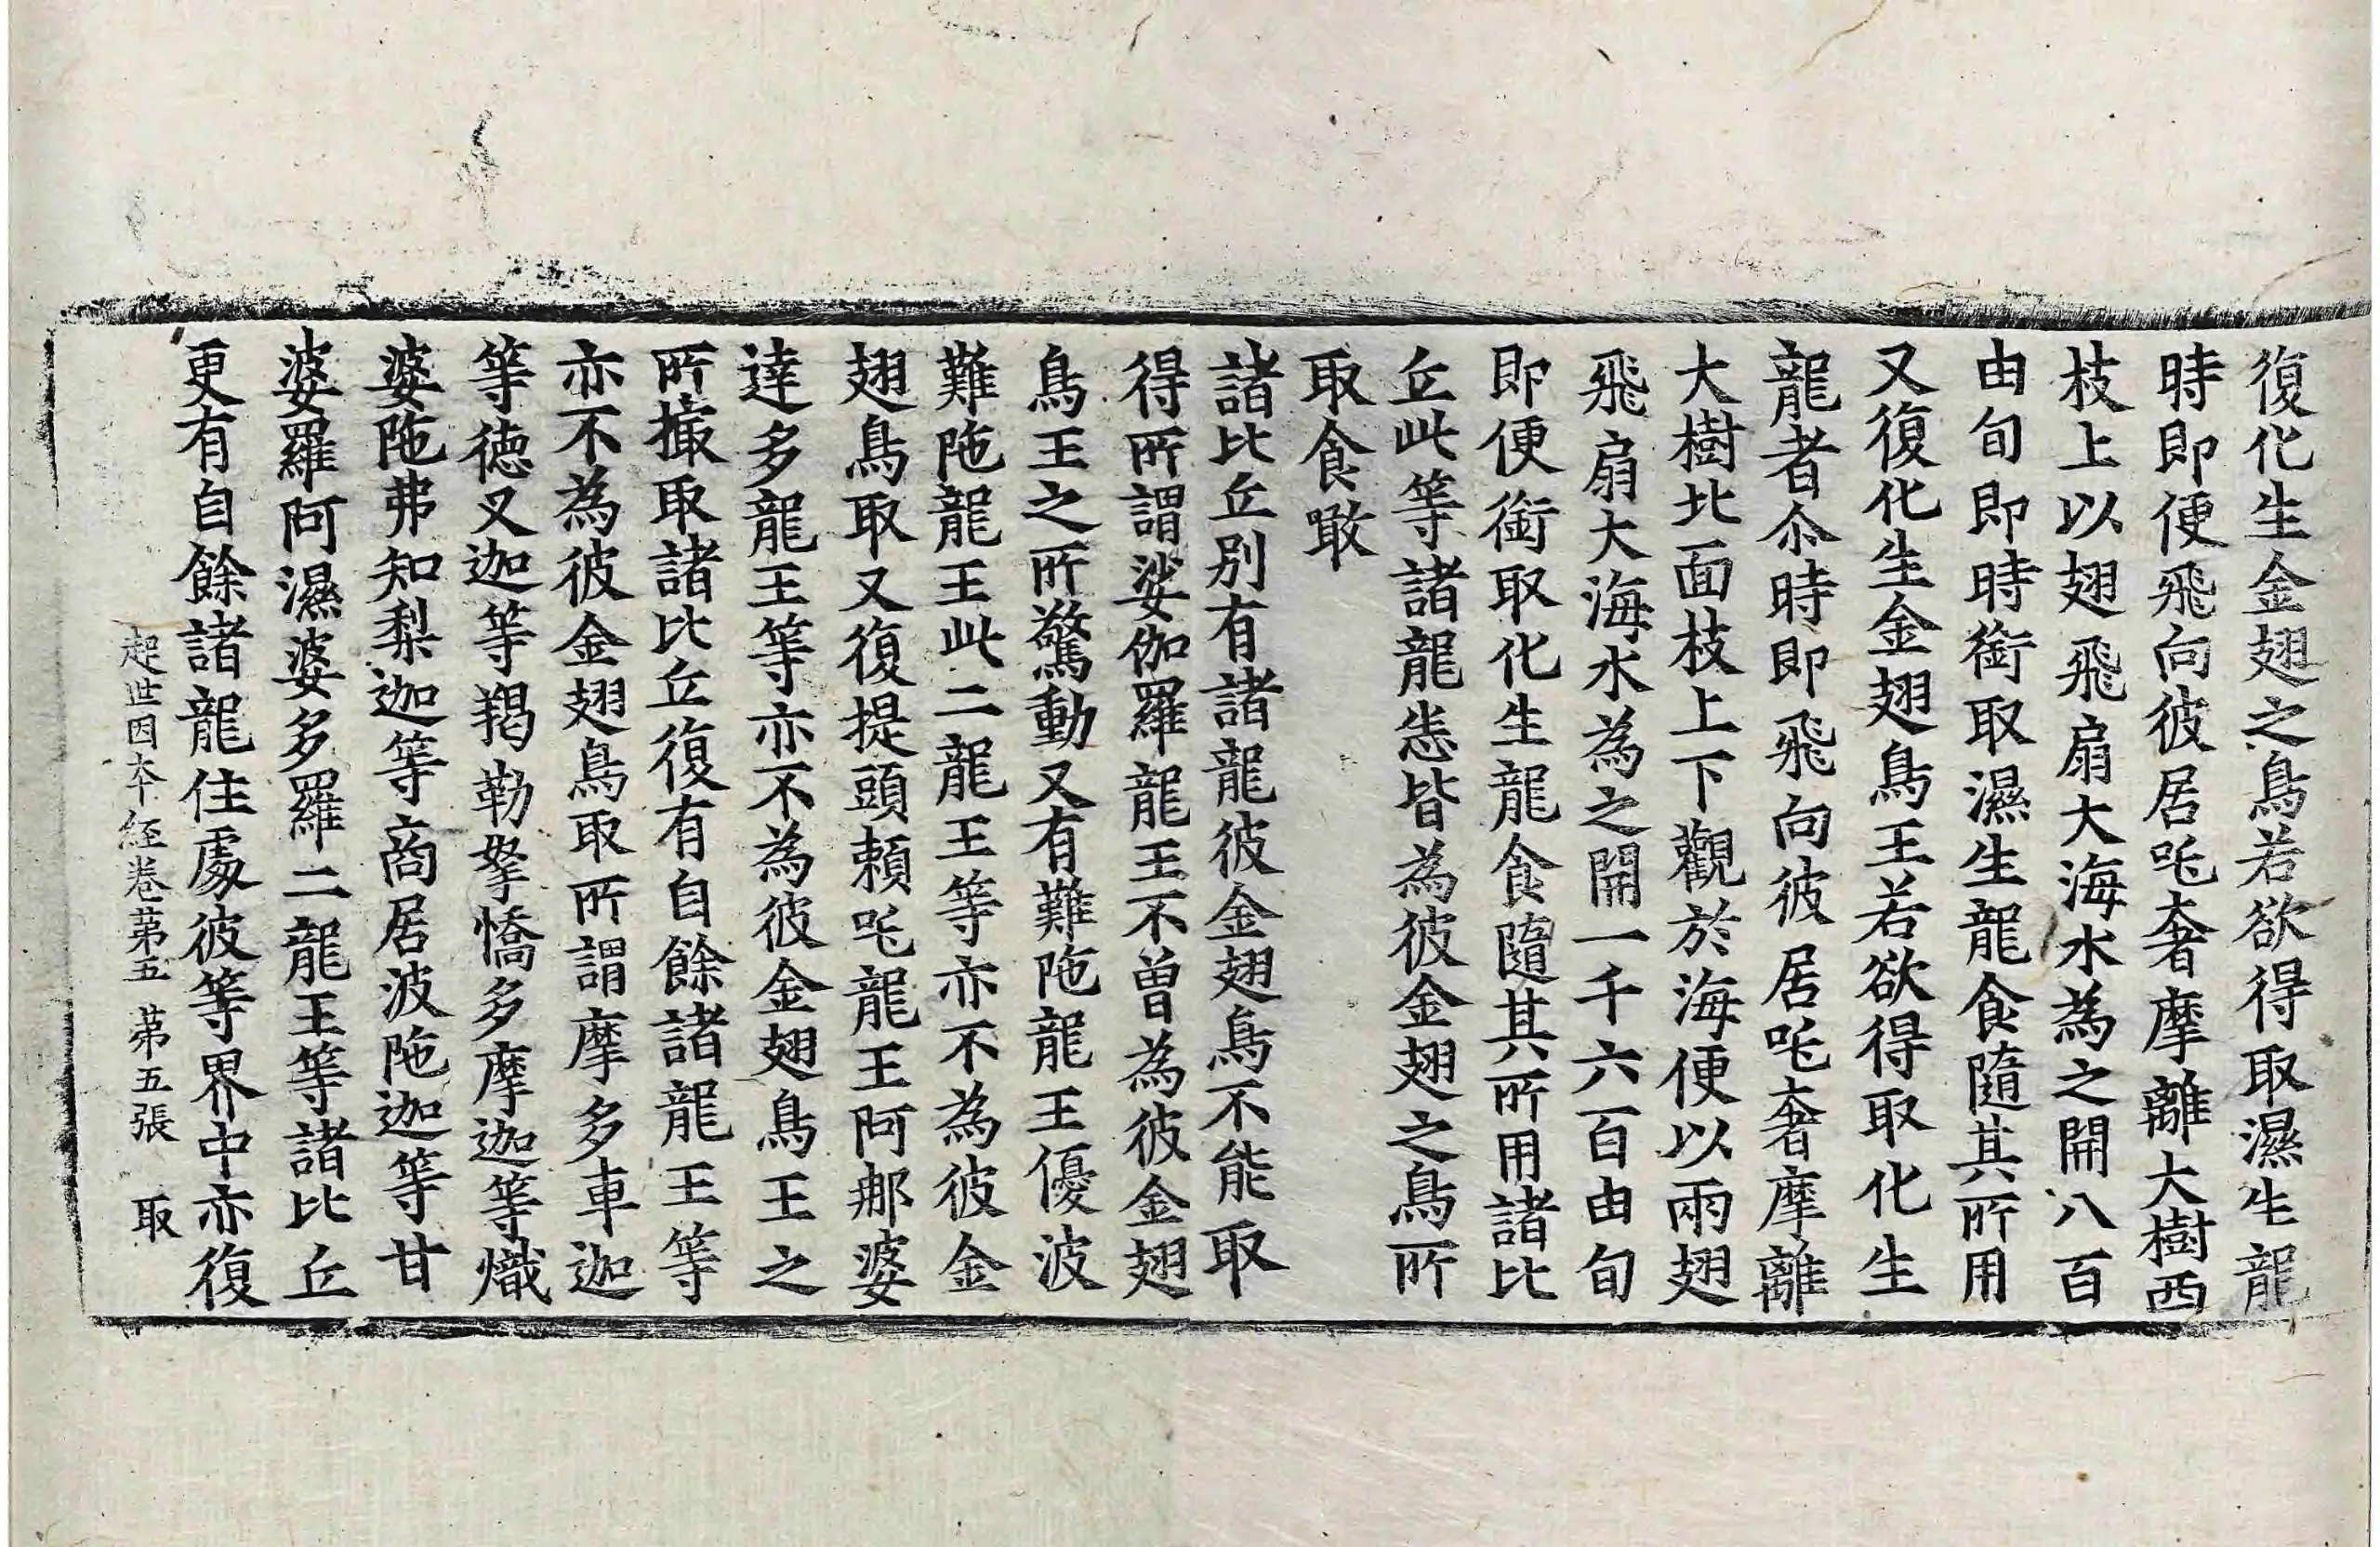 復化生金翅之鳥若欲得取濕生龍
時即便飛向彼居吒奢摩離大樹西
枝上以翅飛扇大海水為之開八百
由旬即時銜取濕生龍食隨其所用
又復化生金翅鳥王若欲得取化生
龍者尒時即飛向彼居吒奢摩離
大樹北面枝上下觀於海便以兩翅
飛扇大海水為之開一千六百由旬
即便銜取化生龍食隨其所用諸比
丘此等諸龍悉皆為彼金翅之鳥所
取食噉
諸比丘別有諸龍彼金翅鳥不能取
得所謂娑伽羅龍王不曾為彼金翅
鳥王之所驚動又有難陁龍王優波
難陁龍王此二龍王等亦不為彼金
翅鳥取又復提頭賴吒龍王阿那婆
達多龍王等亦不為彼金翅鳥王之
所撮取諸比丘復有自餘諸龍王等
亦不為彼金翅鳥取所謂摩多車迦
等德叉迦等羯勒拏憍多摩迦等熾
婆陁弗知梨迦等商居波陁迦等甘
婆羅阿濕婆多羅二龍王等諸比丘
更有自餘諸龍住處彼等界中亦復
起世因本經卷第五 第五張 取